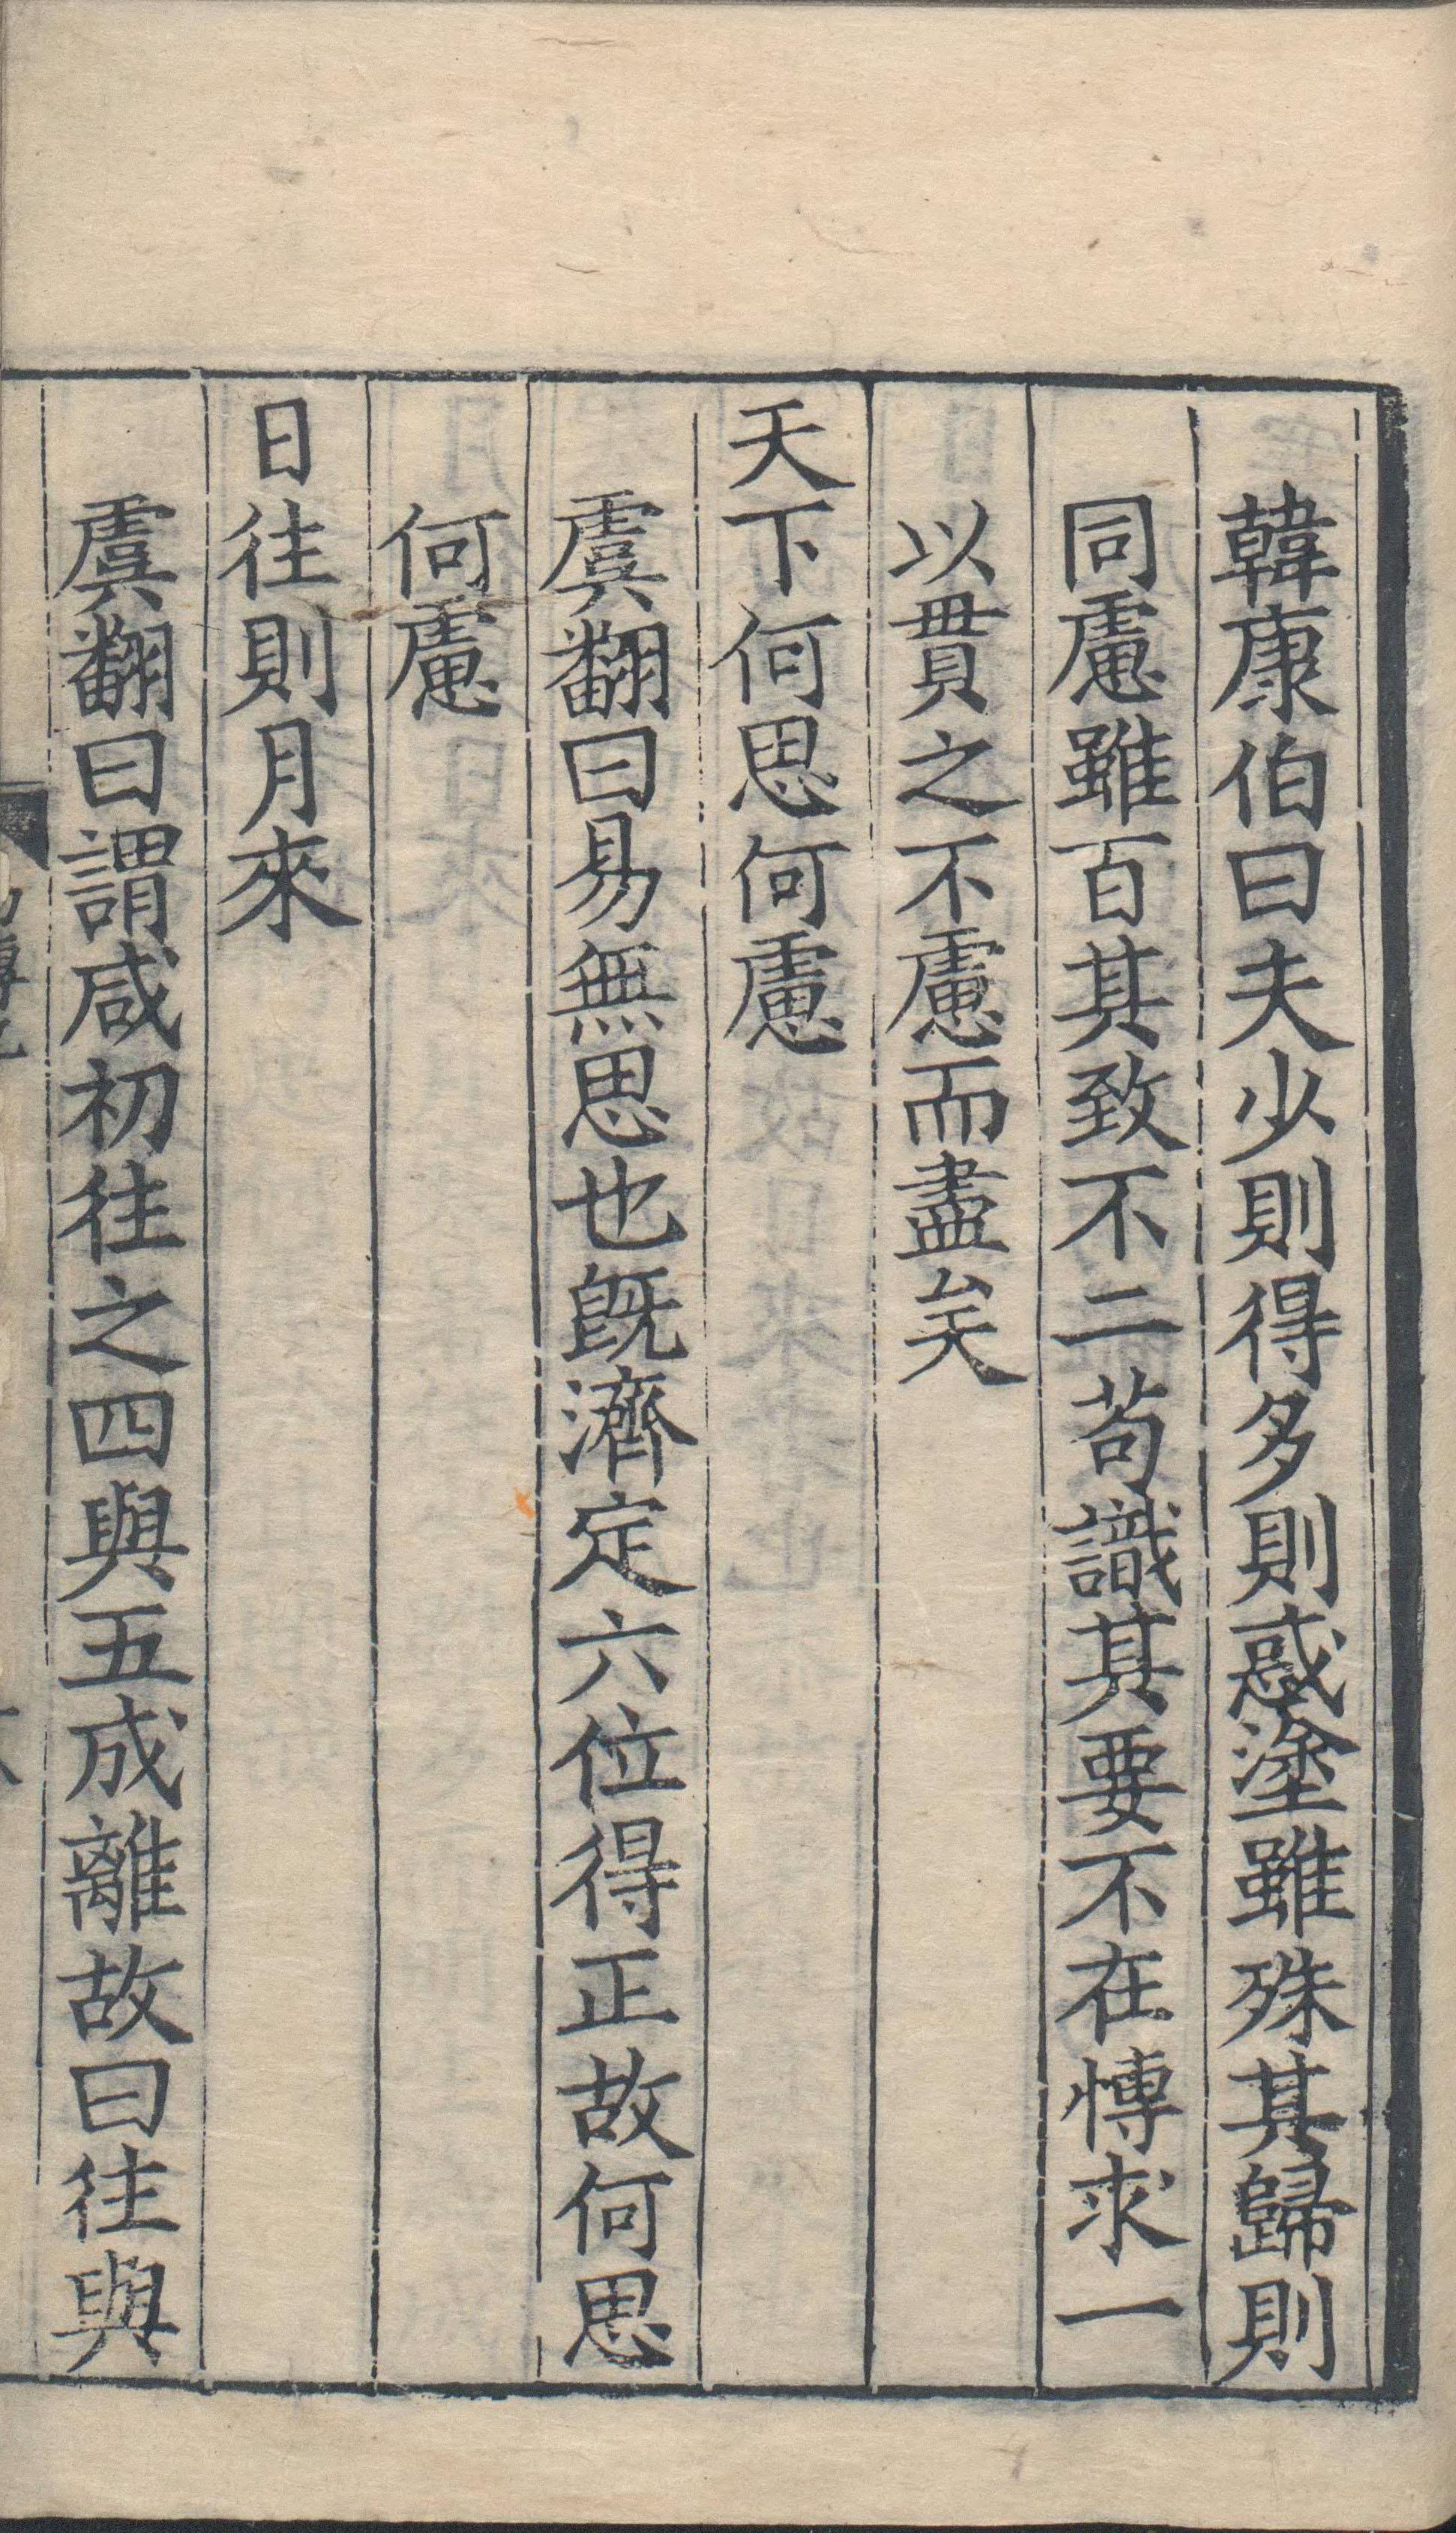 韓康伯曰夫少則得多則惑塗雖殊其歸則
同慮雖百其致不二苟識其要不在愽求一
以貫之不慮而盡矣
天下何思何慮
虞翻曰易無思也旣濟定六位得正故何思
何慮
日往則月來
虞翻曰謂咸初往之四與五成離故曰往與